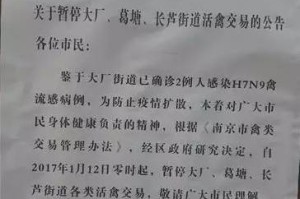 关于暂停大厂、葛塘、长芦街道活禽交易的公告
各位市民：
鉴于大厂街道已确诊2例人感染H7N9禽
流感病例，为防止疫情扩散，本着对广大市
民身体健康负责的精神，根据《南京市禽类
交易管理办法》，经区政府研究决定，自
2017年1月12日零时起，暂停大厂、葛塘、长
芦街道各类活禽交易，敬请广大市民理解